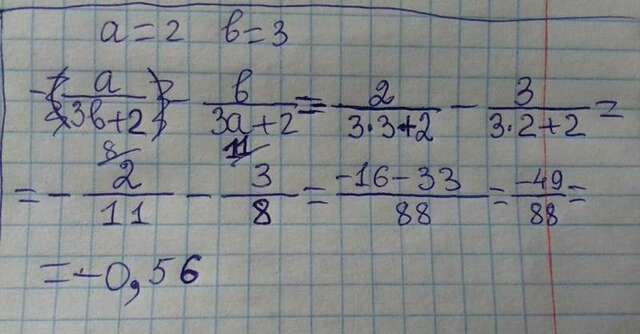 a=2 в=3
-(a/(3в+2)) - в/(3a+2) = 2/(3·3+2) - 3/(3·2+2) =
= - 2/11 - 3/8 = (-16-33)/88 = -49/88 =
= -0,56